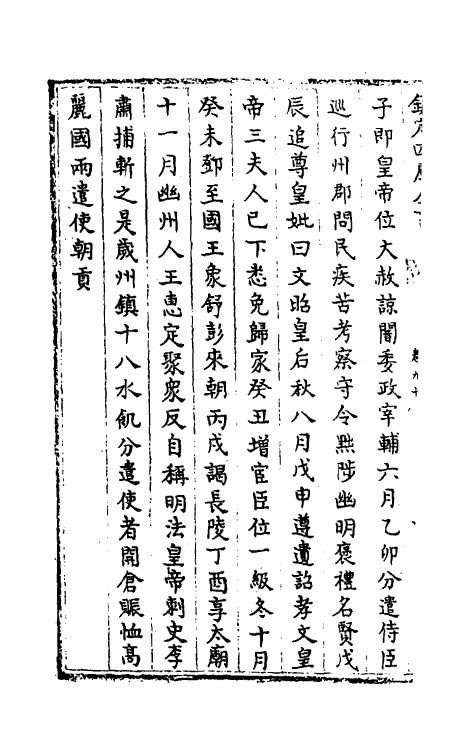 子即皇帝位大赦諒闇委政宰輔六月乙卯分遣侍臣
巡行州郡問民疾苦考察守令黜陟幽明褒禮名賢戊
辰追尊皇妣曰文昭皇后秋八月戊申遵遺詔孝文皇
帝三夫人已下悉免歸家癸丑增宦臣位一級冬十月
癸未鄧至國王象舒彭來朝丙戌謁長陵丁酉享太廟
十一月幽州人王惠定聚衆反自稱明法皇帝刺史李
肅捕斬之是歲州鎮十八水飢分遣使者開倉賑恤高
麗國兩遣使朝貢